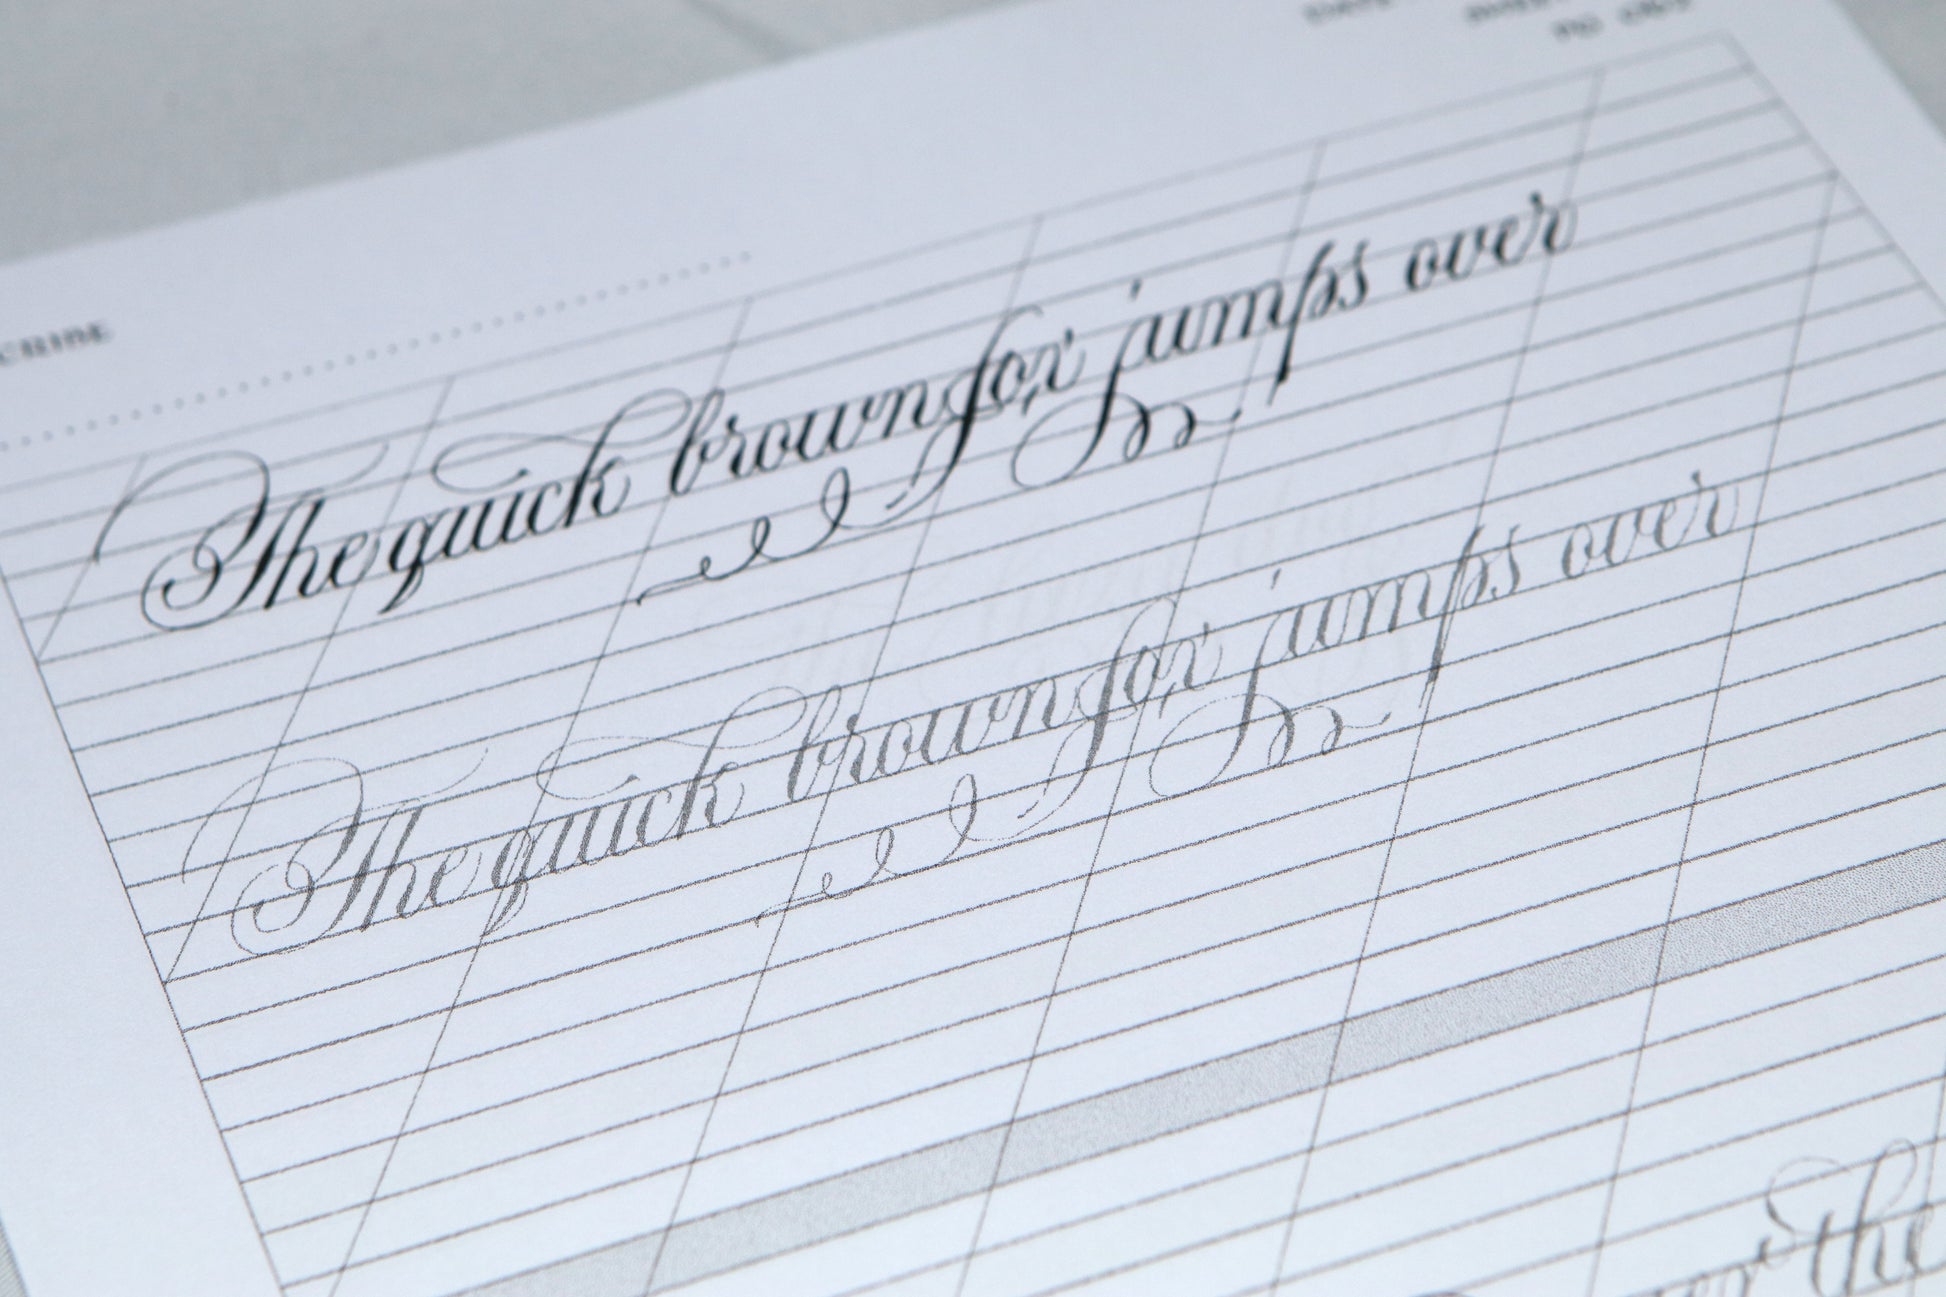 DATE
The quick brown fox jumps over
The quick brown fox jumps over
the